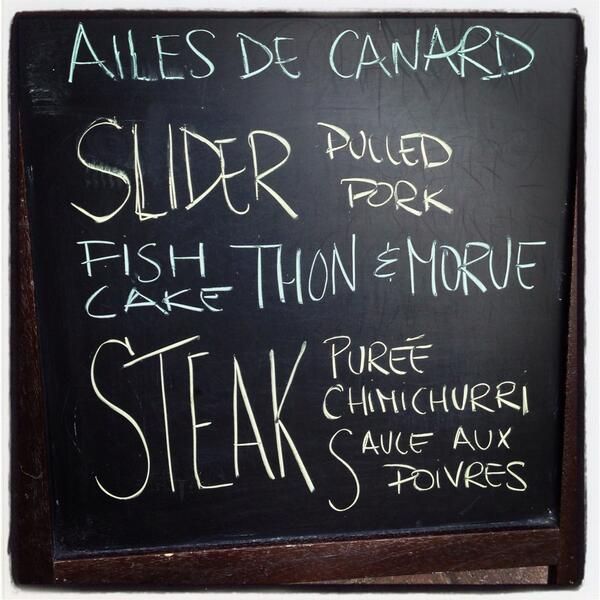 AILES DE CANARD
SLIDER PULLED PORK
FISH CAKE THON & MORUE
STEAK PURÉE
CHIMICHURRI
SAUCE AUX
POIVRES